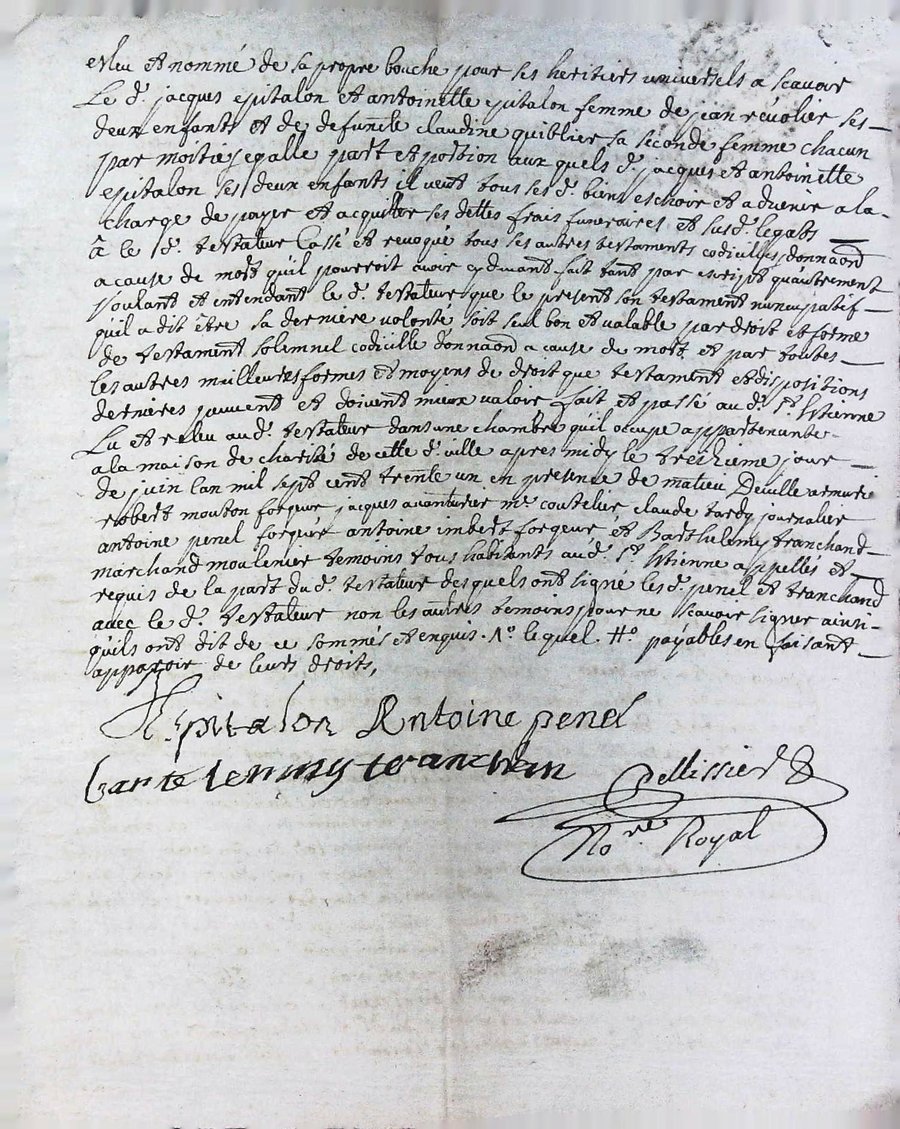 esleu et nommé de sa propre bouche pour ses heritiers universels a scavoir
Le d. jacques epitalon et antoinette epitalon femme de jean révolier ses
deux enfants et de defuncte claudine quiblier sa seconde femme chacun
par moitie egalle part et portion aux quels d. jacques et antoinette
epitalon ses deux enfants il veut tous ses d. biens eschoir et advenir a la
charge de payer et acquitter ses dettes frais funeraires et susd. legatts
â le sd. testateur Cassé et revoqué tous ses autres testaments codicilles donnaõn
a cause de mort quil pourroit avoir cydevant fait tant par escript quautrement
Voulant et entendant le d. testateur que le present son testament nuncupatif
quil a dit être sa derniere volonté soit seul bon et valable par droit et forme
de testament solemnel codicille donnaõn a cause de mort et par toutes
les autres meilleures formes et moyens de droit que testament et dispositions
dernieres peuvent et doivent mieux valoir fait et passé aud. St. Etienne
Lu et releu aud. testateur dans une chambre quil occupe appartenante
a la maison de charité de cette d. ville apres midy le treizieme jour
de juin lan mil sept cent trente un en presence de matieu Deville armurie
robert mouton forgeur jacques avanturier me. coutelier claude tardy journalier
antoine penel forgeur antoine imbert forgeur et Barthelemy tranchand
marchand moulinier temoins tous habitants aud. St. Etienne appelles et
requis de la part dud. testateur desquels ont signé les d. penel et tranchand
avec le d. testateur non les autres temoins pour ne scavoir signer ainsi
quils ont dit de ce sommés et enquis. lequel. payables en faisant
apparoir de leurs droits,
Epitalon Antoine penel
bartelemy tranchan
Pellissier
Nore. Royal